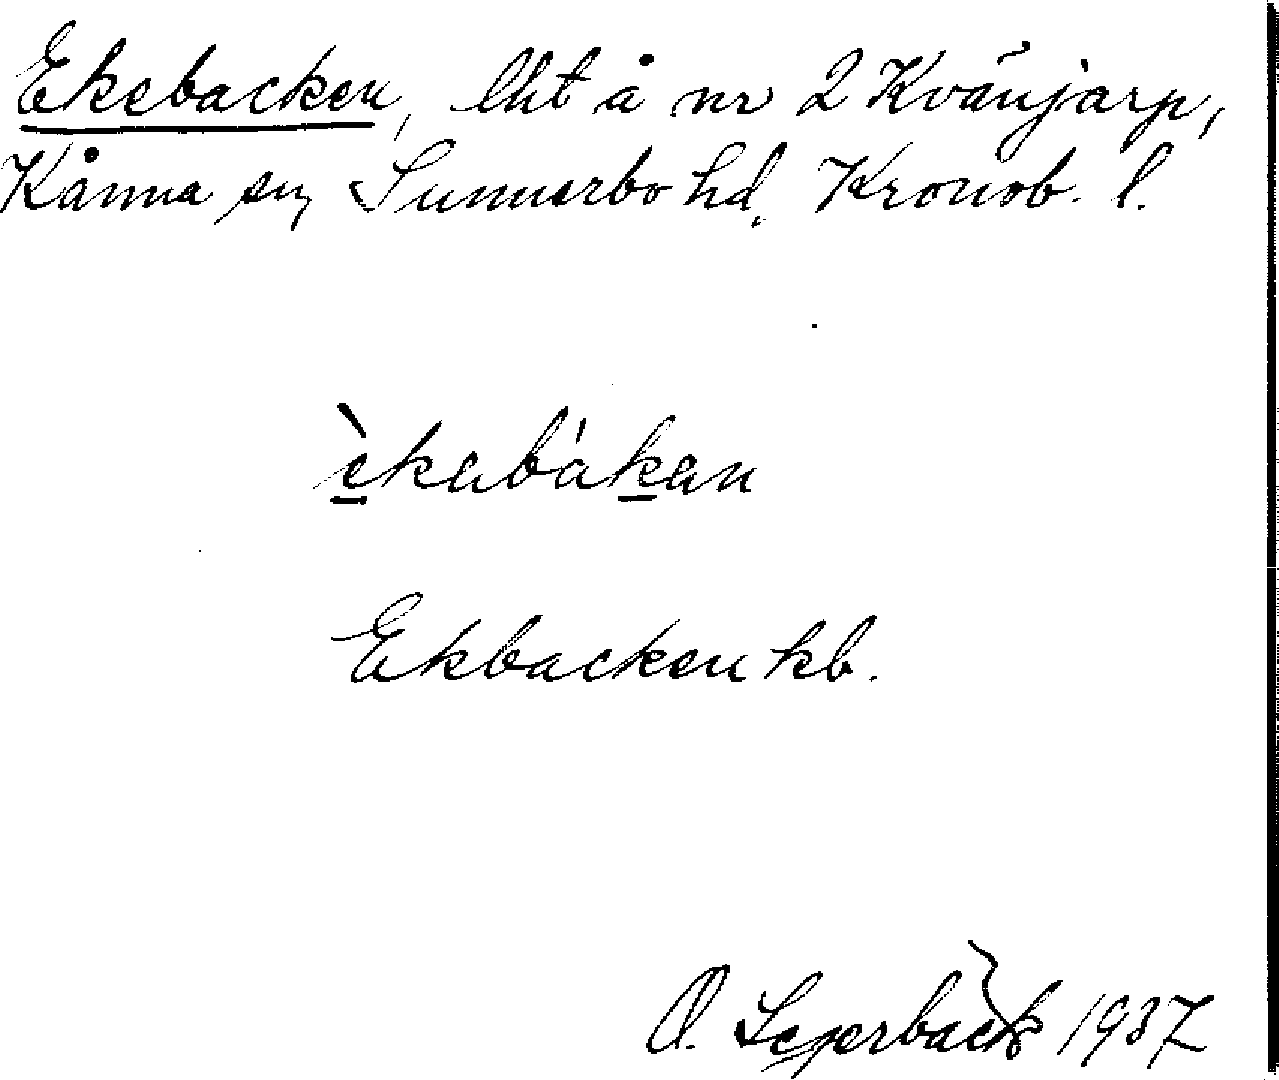 Ekebacken, lht å nr 2 Kvänjarp,
Kånna sn, Sunnerbo hd, Kronob. l.
èkabákan
Ekbacken kb.
O. 1937